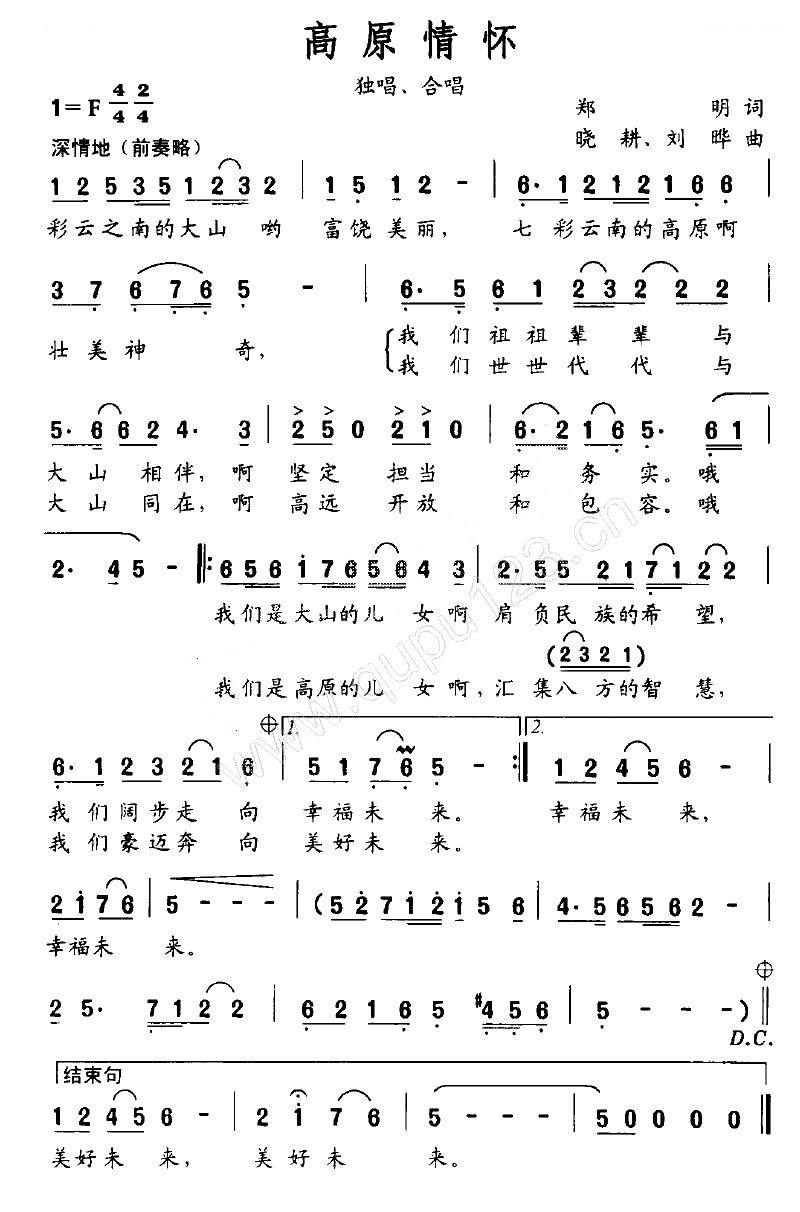 高原情怀
独唱、合唱
1=F 4/4 2/4
郑明词
深情地（前奏略）
晓耕、刘晔曲
1 2 5 3 5 1 2 3 2 | 1 5 1 2 - | 6· 1 2 1 2 1 6 6 |
彩云之南的大山 哟 富饶美丽， 七 彩云南的高原啊
3 7 6 7 6 5 - | 6· 5 6 1 2 3 2 2 2 |
壮美神 奇， 我们祖祖辈 辈 与
我们世世代 代 与
5· 6 6 2 4· 3 | 2 5 0 2 1 0 | 6· 2 1 6 5· 6 1 |
大山 相伴，啊 坚定 担当 和 务 实。哦
大山 同在，啊 高远 开放 和 包 容。哦
2· 4 5 - ‖: 6 5 6 1 7 6 5 6 4 3 | 2· 5 5 2 1 7 1 2 2 |
我们是大山的儿 女啊 肩 负民 族的希 望，
(2 3 2 1)
我们是高原的儿 女啊，汇 集八 方的智 慧，
1. 2.
6· 1 2 3 2 1 6 | 5 1 7 6 5· - :‖ 1 2 4 5 6 - |
我 们 阔步走 向 幸福未 来。 幸福未 来，
我 们 豪迈奔 向 美好未 来。
2 1 7 6 | 5 - - - | (5 2 7 1 2 1 5 6 | 4· 5 6 5 6 2 - |
幸福未 来。
2 5· 7 1 2 2 | 6 2 1 6 5 #4 5 6 | 5 - - -) ‖
D.C.
结束句
1 2 4 5 6 - | 2 1 7 6 | 5 - - - | 5 0 0 0 0 ‖
美好未 来， 美 好未 来。
www.qupu123.cn